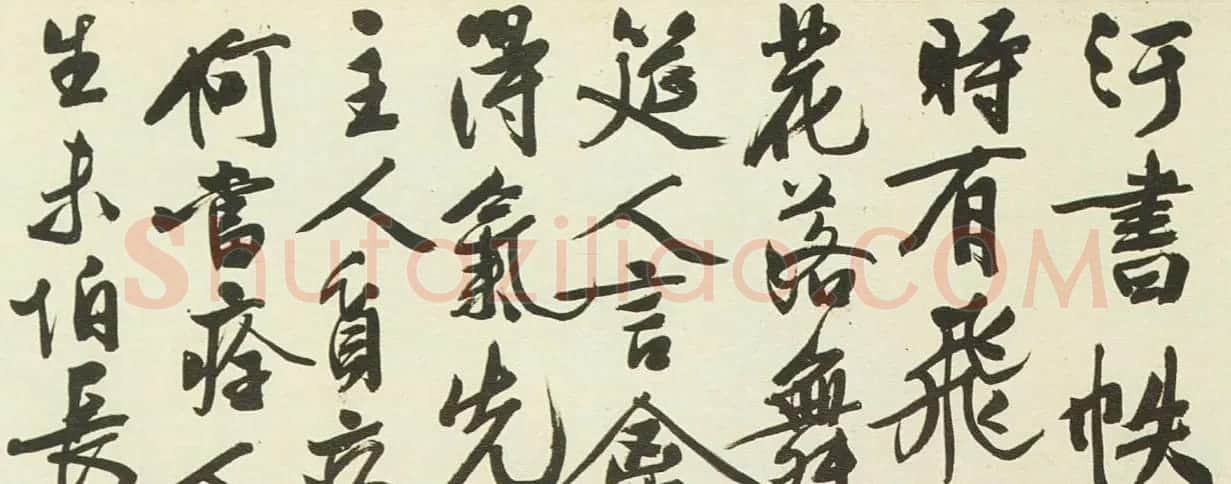 汙書帙
時有飛
花落舞
筵人言金
得氣先
主人貧亦
何當痊
生未怕長
Shufaziliao.COM